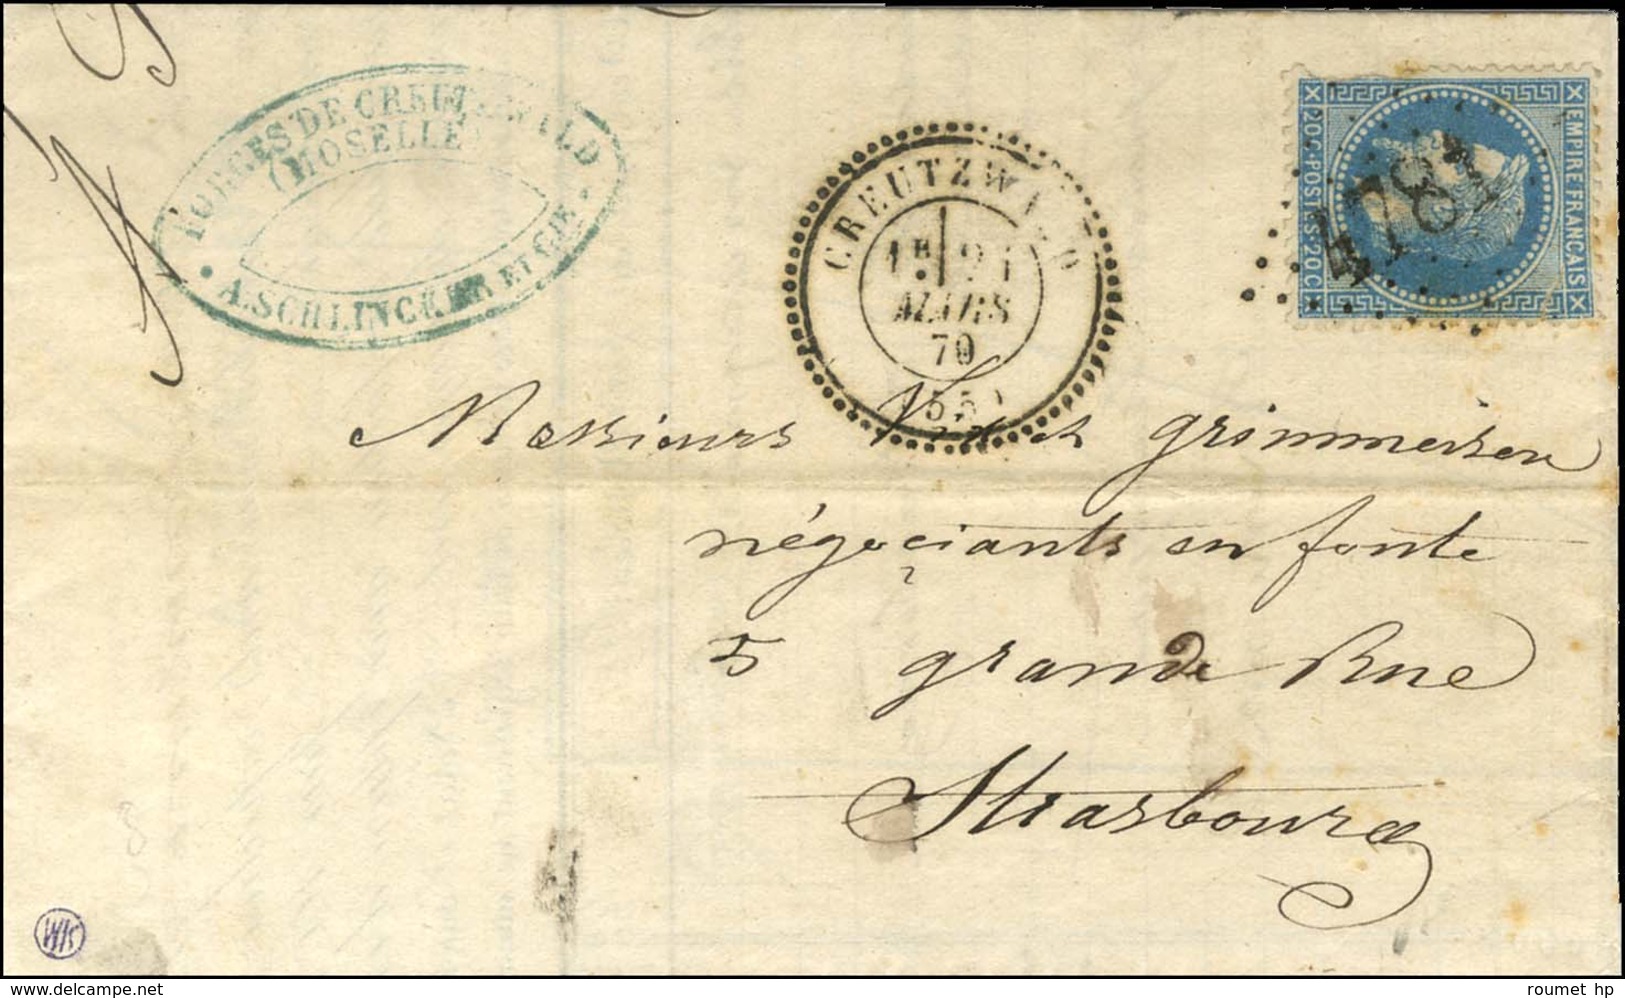 FORGES DE CREUTZWALD
(MOSELLE)
A. SCHLINCKER ET CIE
CREUTZWALD
1E
21
MARS
70
(55)
EMPIRE FRANÇAIS
20.C-POSTES-20.C
478
Messieurs et grimmeisen
négoçiants en fonte
5 grande Rue
Strasbourg
WK
www.delcampe.net
roumet hp